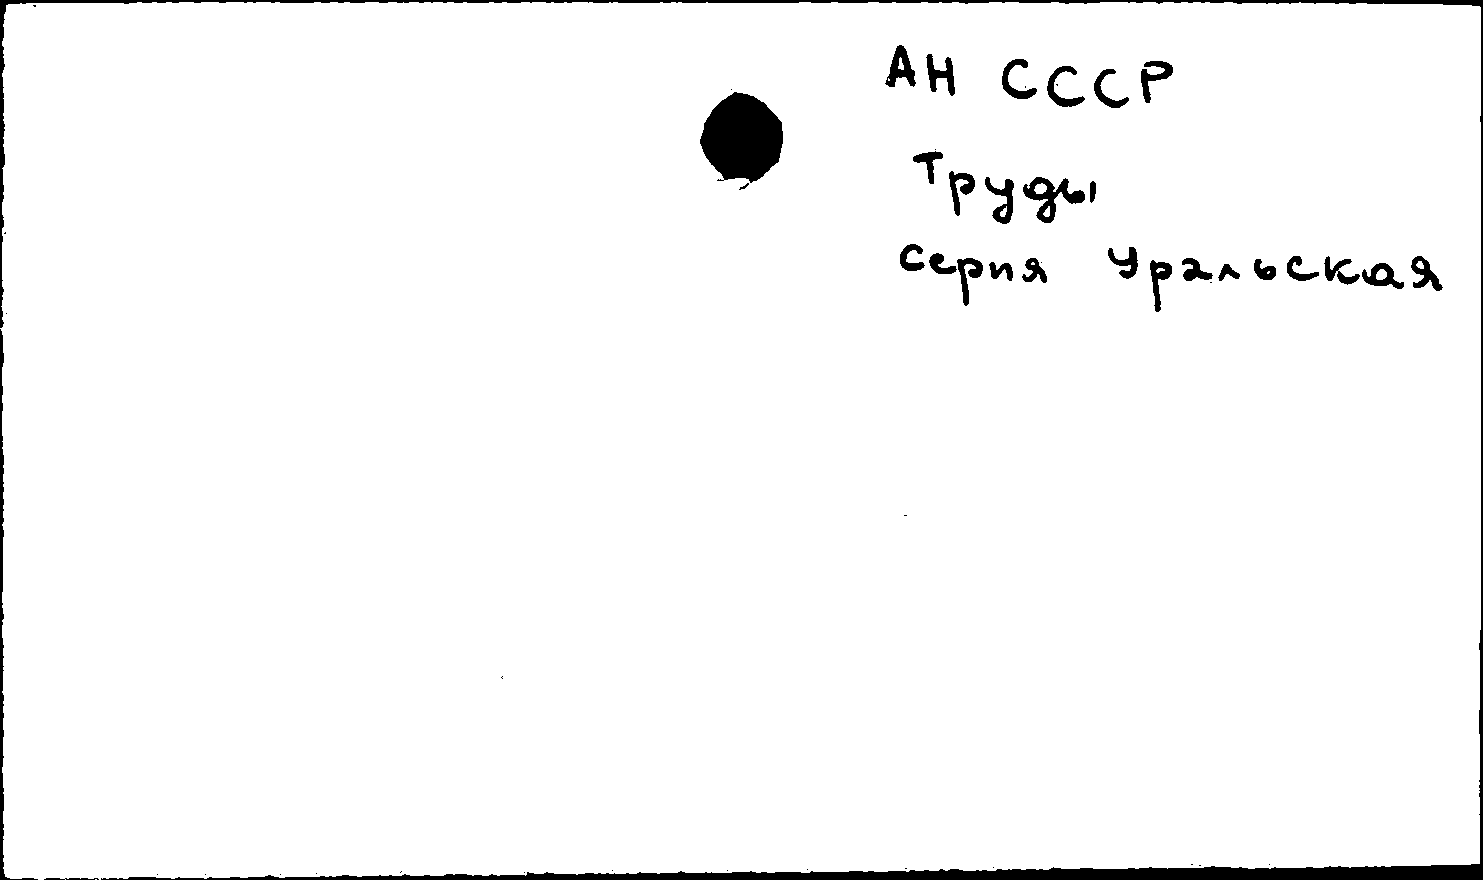 АН СССР
Труды
серия Уральская